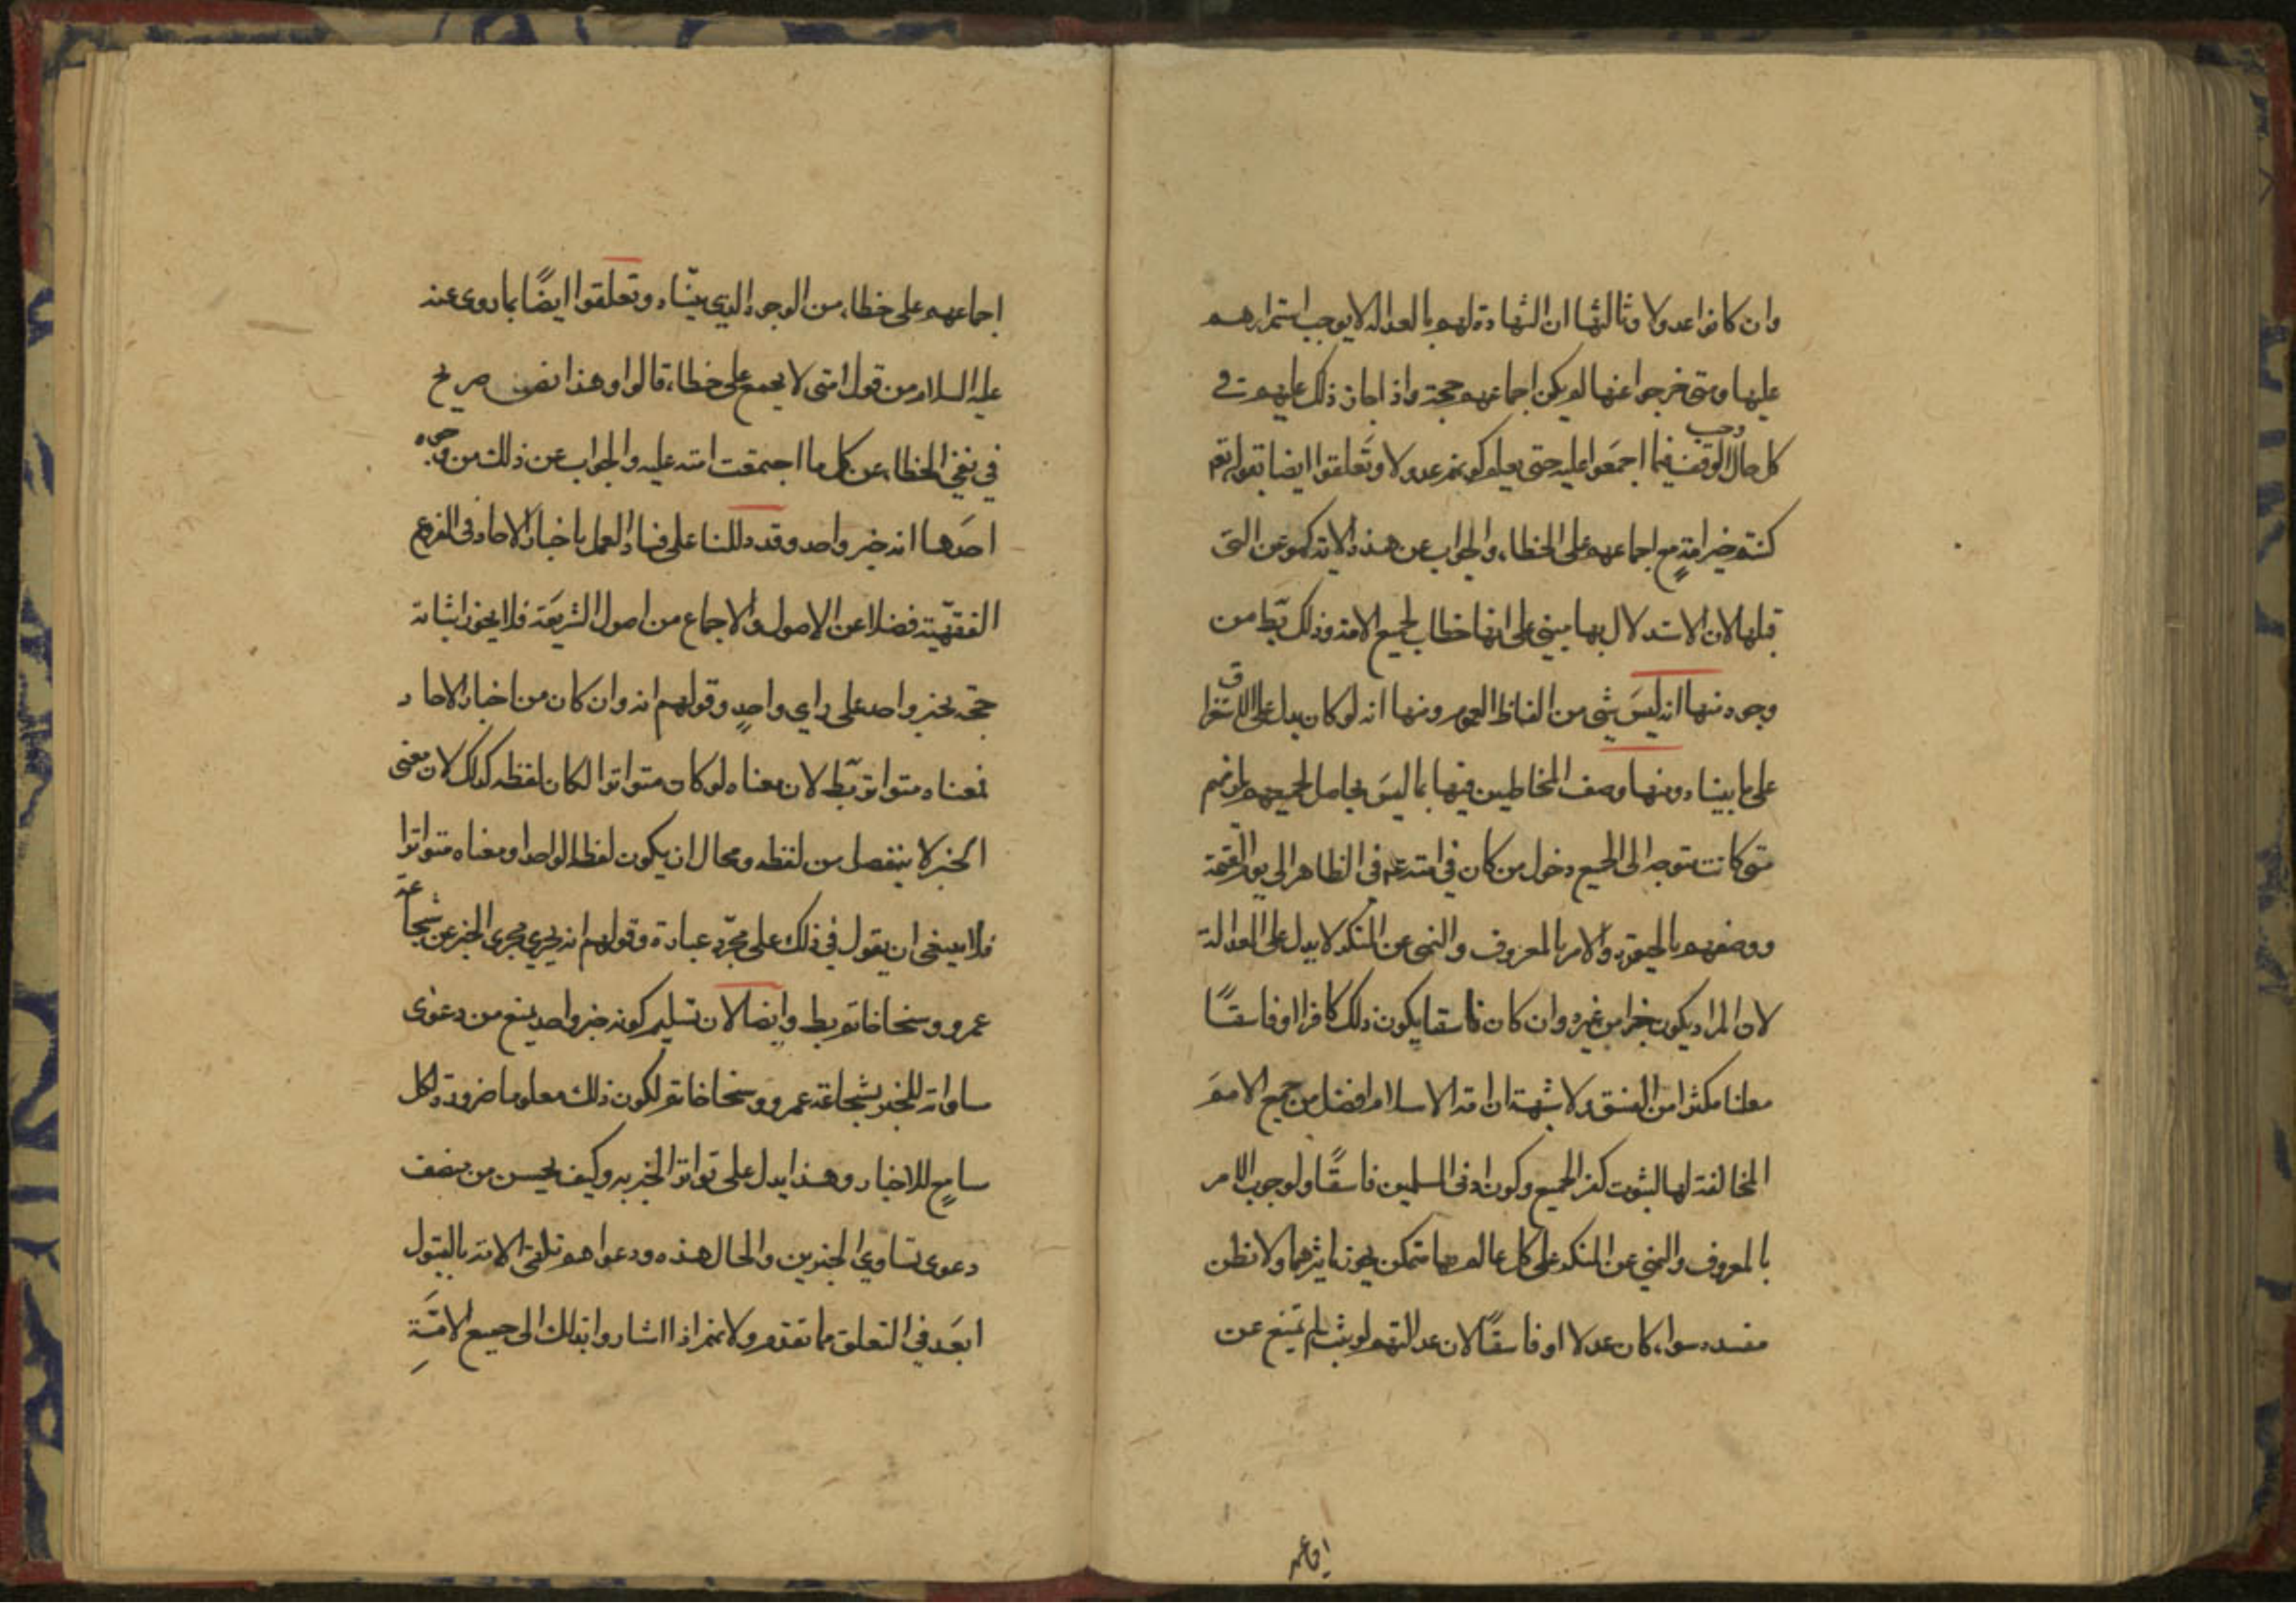 وان كانوا عدولا وثالثها ان الشهادة لهم بالعدالة لا يوجب استمرارهم
عليها ومتى خرجوا عنها لم يكن اجماعهم حجة واذا جاز ذلك عليهم في
كل حال وجب الوقف فيما اجمعوا عليه حتى يعلم كونهم عدولا وتعلقوا ايضا بقوله تعم
كنتم خير امةٍ مع اجماعهم على الخطاء والجواب عن هذه الاية كهو عن التى
قبلها لان الاستدلال بها مبنى على انها خطاب لجميع الامة وذلك بّط من
وجوه منها انه ليسَ شى من الفاظ العموم ومنها انه لو كان يدل على الاستغراق
على ما بيناه ومنها وصف المخاطبين فيها بما ليسَ بحاصل لجميعهم
متى كانت متوجه الى الجميع دخل من كان في امته عم في الظاهر الى يوم القيمة
ووصفهم بالخيرية والامر بالمعروف والنهى عن المنكر لا يدل على العدالة
لان المراد يكون خيرا من غيره وان كان فاسقا يكون ذلك كافرا او فاسقًا
معلنا مكثرا من الفسق ولا شبهة ان امة الاسلام افضل من جميع الامم
المخالفة لها لثبوت كفر الجميع وكون ادنى المسلمين فاسقًا ولوجوب الامر
بالمعروف والنهي عن المنكر على كل عالم بهما متمكن يجوز تاثيرهما ولا تظن
مفسده سواء كان عدلا او فاسقًا لان عدالتهم لو يثبت لم تمنع عن
اجماعهم
اجماعهم على خطاء من الوجوه الذي بيّناه وتعلقوا ايضًا بما روى عنه
عليه السلام من قوله امتى لا يجمع على خطاء قالوا وهذا نص صريح
في نفي الخطاء عن كل ما اجتمعت امته عليه والجواب عن ذلك من وجوه
احَدها انه خبر واحد وقد دللنا على فساد العمل باخبار الاحاد فى الفروع
الفقهيّة فضلا عن الاصول والاجماع من اصول الشريعَة فلا يجوز اثباته
حجّة بخبر واحد على راي واحدٍ وقولهم انه وان كان من اخبار الاحاد
فمعناه متواتر بّط لان معناه لو كان متواترا لكان لفظه كذلك لان معنى
الخبر لا ينفصل من لفظه ومحال ان يكون لفظه الواحد او معناه متواترا
فلا ينبغى ان يقول في ذلك على مجرّد عبارة وقولهم انه يجري مجرى الخبر عن شجاعة
عمرو وسخا حاتم بط وايضا لان تسليم كونه خبر واحد يمنع من دعوى
ساواته للخبر بشجاعة عمرو وسخا حاتم لكون ذلك معلوما ضرورة لكل
سامعٍ للاخبار وهذا يدل على تواتر الخبر به وكيف يحسن من ينصف
دعوى تساوي الخبرين والحال هذه ودعواهم تلقى الامة بالقبول
ابعَد في التعلق مما تقدم ولانهم اذا اشاروا بذلك الى جميع الامَّةِ